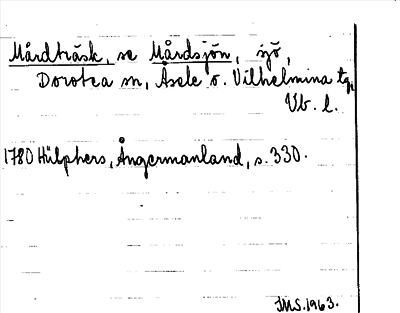 Mårdträsk, se Mårdsjön, sjö,
Dorotea sn, Åsele o. Vilhelmina tg,
Vb. l.
1780 Hülphers, Ångermanland, s. 330.
JMS. 1963.